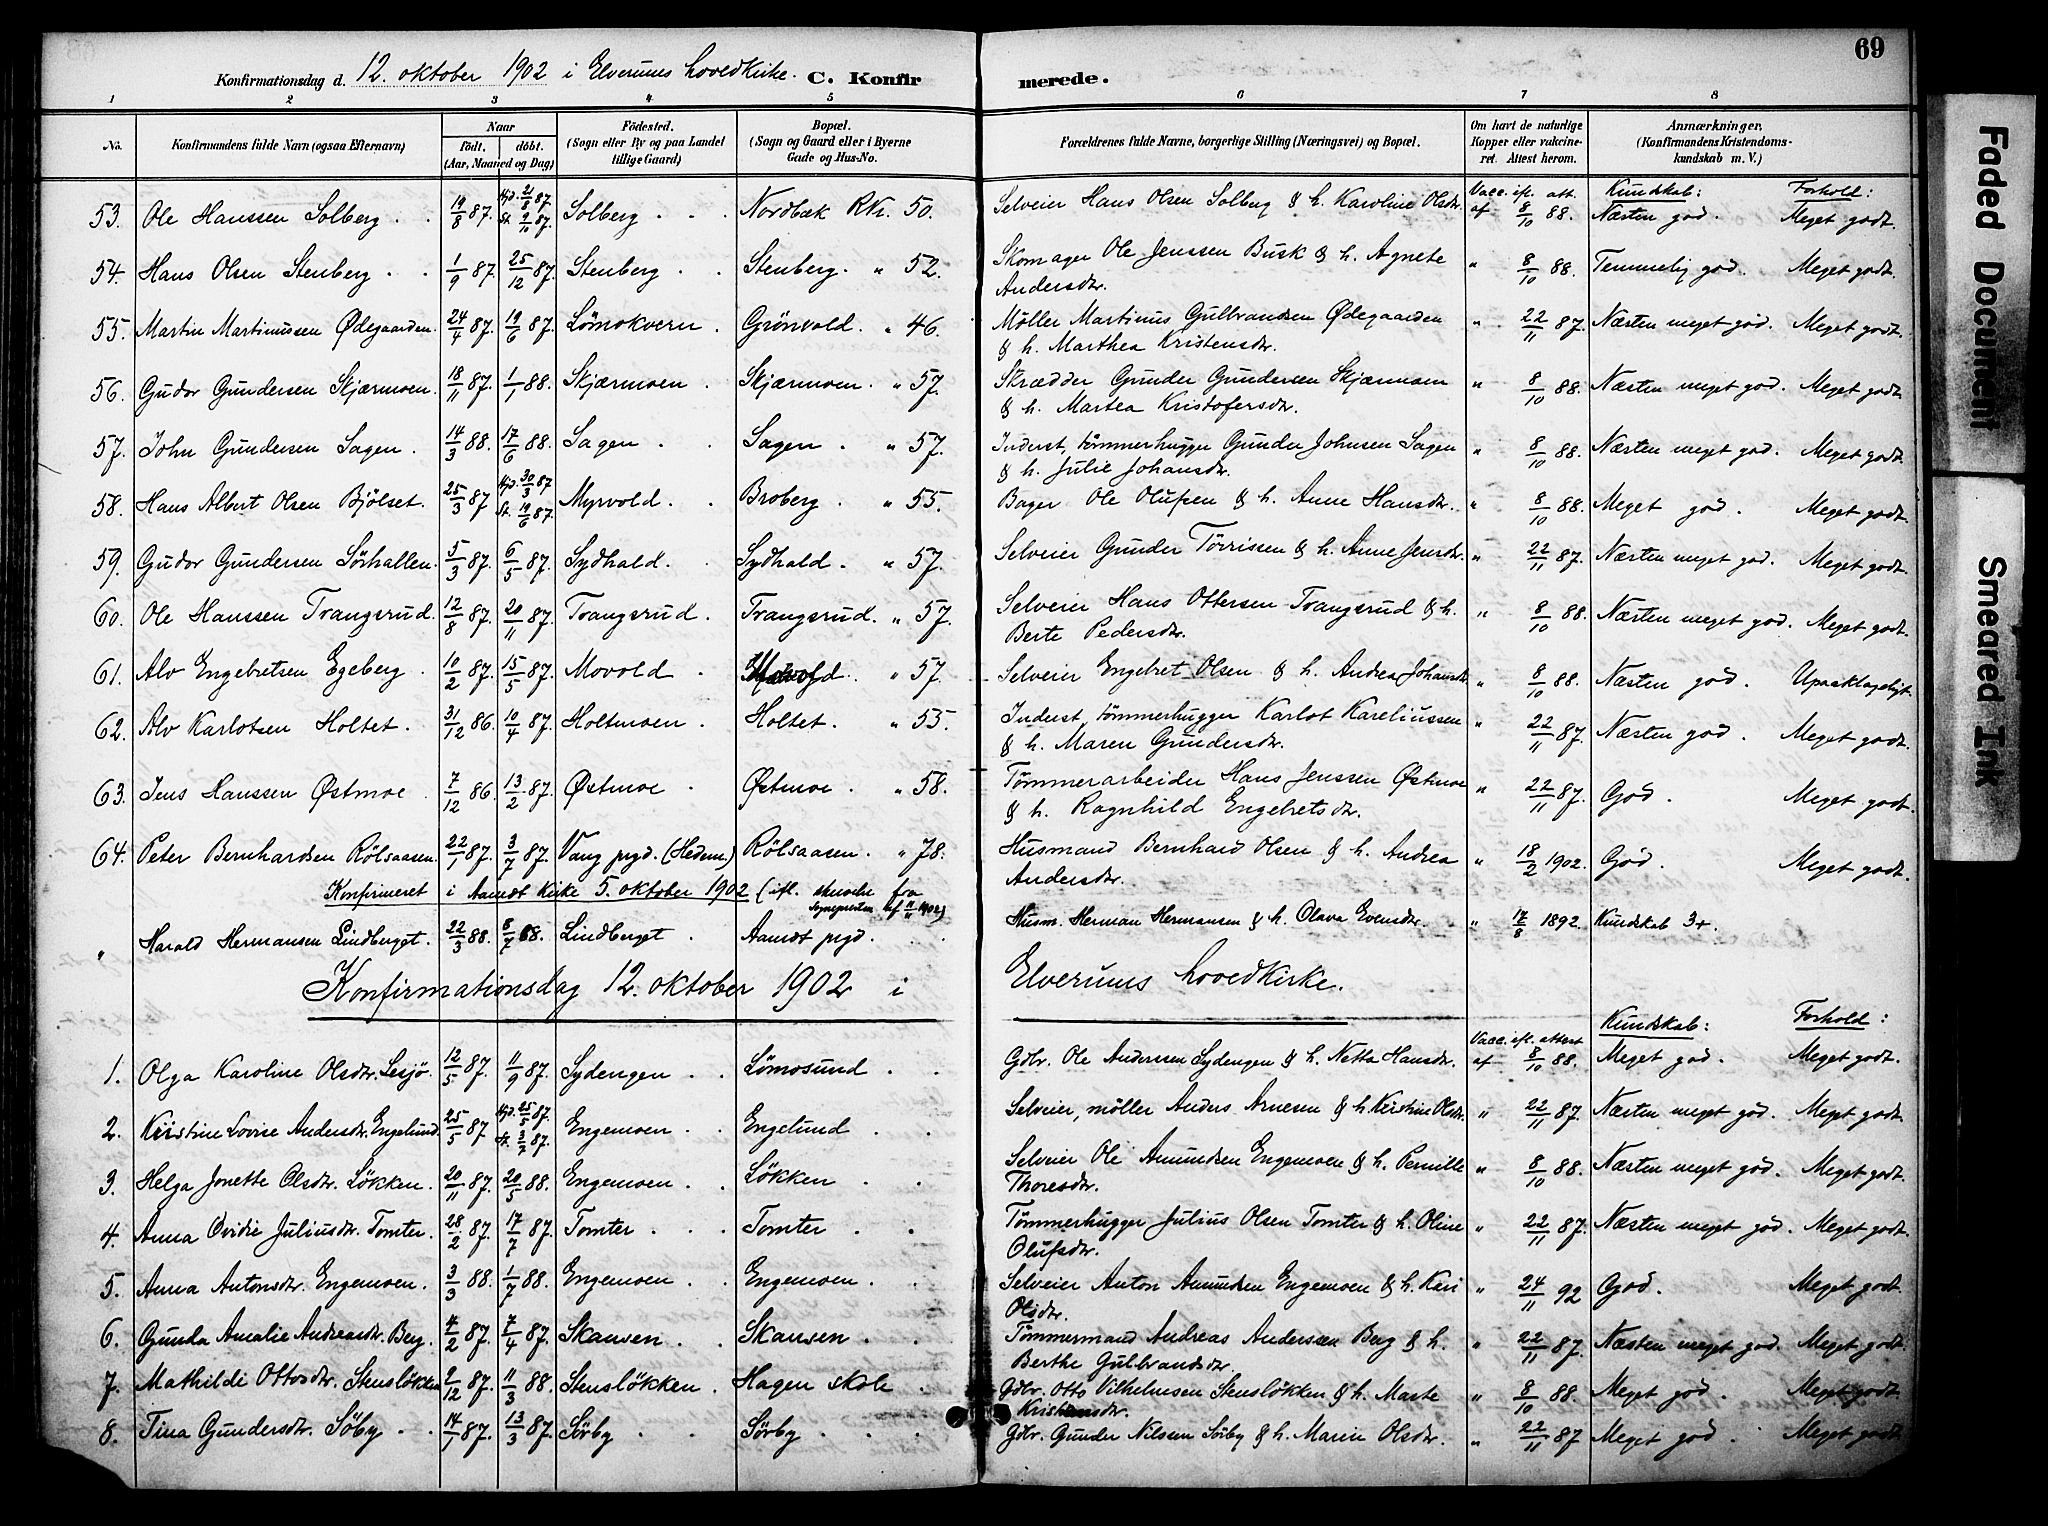 69
Konfirmationsdag d. 12. oktober 1902 i Elverums hovedkirke. C. Konfirmerede.
1 2 3 4 5 6 7 8
No. Konfirmandens fulde Navn (ogsaa Efternavn) Naar født. døbt. (Aar, Maaned og Dag) Fødested. (Sogn eller By og paa Landet tillige Gaard) Bopæl. (Sogn og Gaard eller i Byerne Gade og Hus-No. Forældrenes fulde Navne, borgerlige Stilling (Næringsvei) og Bopæl. Om havt de naturlige Kopper eller vakcineret. Attest herom. Anmærkninger. (Konfirmandens Kristendomskundskab m. V.)
Vacc. ifl. att. Kundskab: Forhold:
53. Ole Hanssen Solberg. 19/8 87. Hjd. 21/8 87 St. 9/10 87. Solberg Nordbæk RKr. 50. Selveier Hans Olsen Solberg & h. Karoline Olsdtr. af 8/10 88. Næsten god. Meget godt.
54. Hans Olsen Stenberg 1/9 87. 25/12 87. Stenberg Stenberg. " 52. Skomager Ole Jenssen Busk & h. Agnete Andersdtr. " 8/10 88. Temmelig god. Meget godt.
55. Martin Martinussen Ødegaarden. 24/4 87. 19/6 87. Lömokvern Grönvold. " 46. Møller Martinus Gulbrandsen Ødegaarden & h. Marthea Kristensdtr. " 22/11 87. Næsten meget god. Meget godt.
56. Gudor Gundersen Skjærmoen. 18/11 87. 1/1 88. Skjærmoen Skjærmoen. " 57. Skrædder Gunder Gundersen Skjærmoen & h. Martea Kristofersdtr. " 8/10 88. Næsten meget god. Meget godt.
57. John Gundersen Sagen. 14/3 88. 17/6 88. Sagen Sagen " 57. Inderst, tömmerhugger Gunder Johnsen Sagen & h. Julie Johansdtr. " 8/10 88. Næsten meget god. Meget godt.
58. Hans Albert Olsen Bjölset. 25/3 87 Hjd. 30/3 87 St. 19/6 87. Myrvold. Broberg " 55. Bager Ole Olufsen & h. Anne Hansdtr. " 8/10 88. Meget god. Meget godt.
59. Gudor Gundersen Sörhallen. 5/3 87. 6/5 87. Sydhald. Sydhald " 57. Selveier Gunder Törrissen & h. Anne Jensdtr. " 22/11 87. Næsten meget god. Meget godt.
60. Ole Hanssen Trangsrud. 12/8 87. 20/11 87. Trangsrud. Trangsrud. " 57. Selveier Hans Ottersen Trangsrud & h. Berte Pedersdtr. " 8/10 88. Næsten meget god. Meget godt.
61. Alv Engebretsen Egeberg. 10/2 87. 15/5 87. Movold " 57. Selveier Engebret Olsen & h. Andrea Johansdtr. " 8/10 88. Næsten god. Upaaklageligt.
62. Alv Karlotsen Holtet. 31/12 86. 10/4 87. Holtmoen Holtet. " 55. Inderst, tömmerhugger Karlot Kareliussen & h. Maren Gundersdtr. " 22/11 87. Næsten god. Meget godt.
63. Jens Hanssen Østmoe 7/12 86. 13/2 87. Østmoe Østmoe " 58. Tömmerarbeider Hans Jenssen Østmoe & h. Ragnhild Engebretsdtr. " 22/11 87. God. Meget godt.
64. Peter Bernhardsen Rölsaasen. 22/1 87. 3/7 87. Vang prgd. (Hedem.) Rölsaasen. " 78. Husmand Bernhard Olsen & h. Andrea Andersdtr. " 18/2 1902. God. Meget godt.
Konfirmeret i Aamodt kirke 5. oktober 1902 (ifl. skrivelse fra Sognepresten af 11/11 1902)
" Harald Hermansen Lindberget. 22/3 88. 8/7 88. Lindberget. Aamodt prgd. Husm. Herman Hermansen & h. Olava Evensdtr. " 17/8 1892. Kundskab 3+.
Konfirmationsdag 12. oktober 1902 i Elverums hovedkirke.
Vacc. ifl. attest Kundskab: Forhold:
1. Olga Karoline Olsdtr. Lesjö. 12/5 87. 11/9 87. Sydengen Lömosund Gdbr. Ole Anderssen Sydengen & h. Netta Hansdtr. af 8/10 88. Meget god. Meget godt.
2. Kristine Lovise Andersdtr. Engelund. 25/5 87 Hjd. 25/5 87. St. 3/7 87. Engemoen Engelund Selveier, möller Anders Arnesen & h. Kristine Olsdtr. " 22/11 87. Næsten meget god. Meget godt.
3. Helga Jonette Olsdtr. Lökken. 20/11 87. 20/5 88. Engemoen Lökken Selveier Ole Amundsen Engemoen & h. Pernille Thoresdtr. " 8/10 88. Næsten meget god. Meget godt.
4. Anna Ovidie Juliusdtr. Tomter. 28/2 87. 17/7 87. Tomter Tomter Tömmerhugger Julius Olsen Tomter & h. Oline Olufsdtr. " 22/11 87. Næsten meget god. Meget godt.
5. Anna Antonsdtr. Engemoen. 3/3 88. 1/7 88. Engemoen. Engemoen. Selveier Anton Amundsen Engemoen & h. Kari Olsdtr. " 24/11 92 God. Meget godt.
6. Gunda Amalie Andreasdtr. Berg. 4/2 87. 7/4 87. Skansen Skansen Tömmermand Andreas Andersen Berg & h. Berthe Gulbrandsdtr. " 22/11 87. Næsten meget god. Meget godt.
7. Mathilde Ottosdtr. Stenslökken 2/12 87. 11/3 88. Stenslökken. Hagen skole Gdbr. Otto Vilhelmsen Stenslökken & h. Marte Kristensdtr. " 8/10 88. Meget god. Meget godt.
8. Tina Gundersdtr. Söby 14/1 87. 13/3 87. Sörby Sörby Gdbr. Gunder Nilsen Sörby & h. Maren Olsdtr. " 22/11 87 Meget god. Meget godt.
Faded Document
Smeared Ink